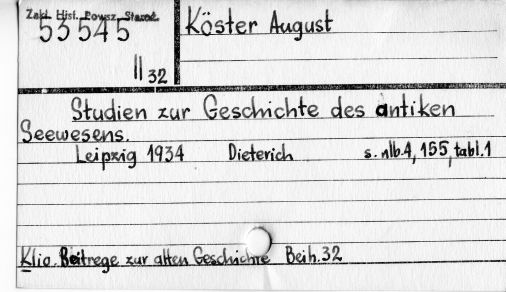 Zakł. Hist. Powsz. Staroż.
53545
II 32
Köster August
Studien zur Geschichte des antiken
Seewesens.
Leipzig 1934 Dieterich s. nlb.4, 155, tabl.1
Klio. Beitrege zur alten Geschichte Beih. 32